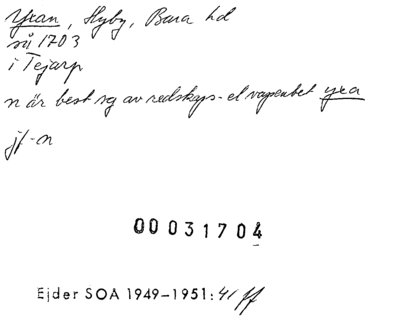 Yxan, Hyby, Bara hd
så 1703
i Tejarp
n är best sg av redskaps- el vapenbet yxa
jf -n
00031704
Ejder SOA 1949-1951: 41 ff